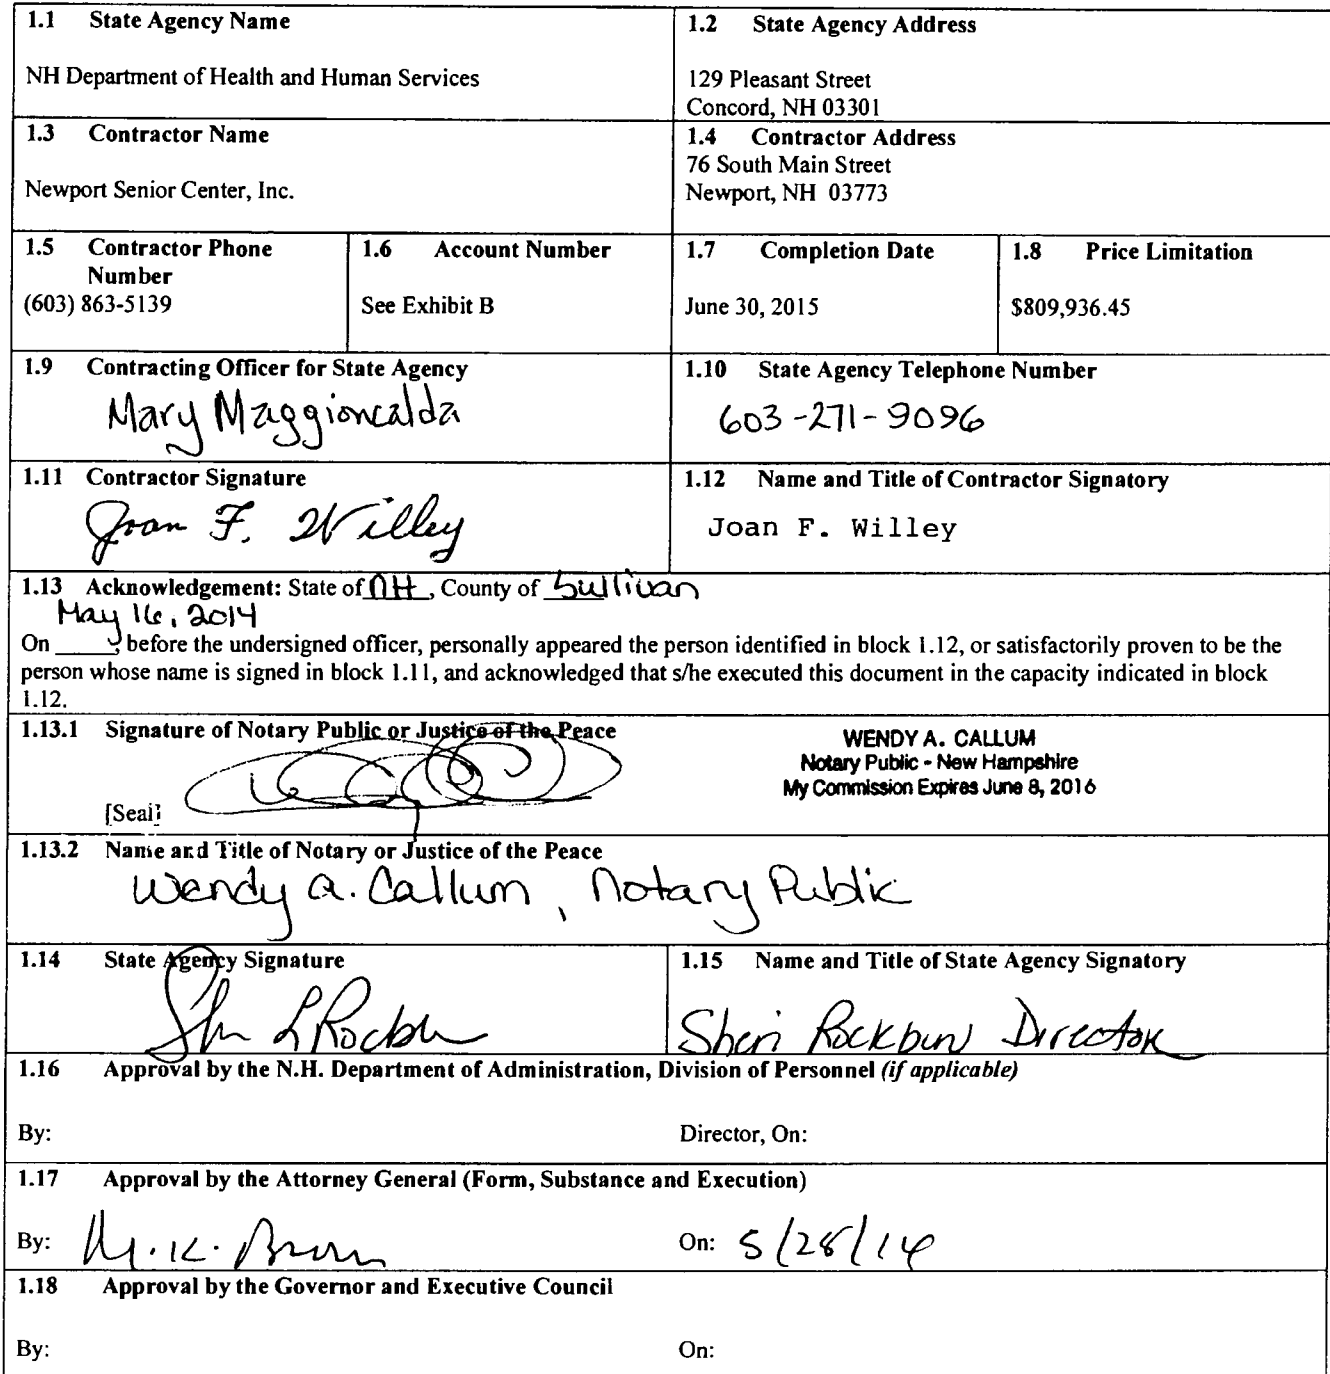 1.1 State Agency Name
NH Department of Health and Human Services
1.2 State Agency Address
129 Pleasant Street
Concord, NH 03301
1.3 Contractor Name
Newport Senior Center, Inc.
1.4 Contractor Address
76 South Main Street
Newport, NH 03773
1.5 Contractor Phone
Number
(603) 863-5139
1.6 Account Number
See Exhibit B
1.7 Completion Date
June 30, 2015
1.8 Price Limitation
$809,936.45
1.9 Contracting Officer for State Agency
Mary Maggioncalda
1.10 State Agency Telephone Number
603-271-9096
1.11 Contractor Signature
Joan F. Willey
1.12 Name and Title of Contractor Signatory
Joan F. Willey
1.13 Acknowledgement: State of NH, County of Sullivan
May 16, 2014
On ____, before the undersigned officer, personally appeared the person identified in block 1.12, or satisfactorily proven to be the
person whose name is signed in block 1.11, and acknowledged that s/he executed this document in the capacity indicated in block
1.12.
1.13.1 Signature of Notary Public or Justice of the Peace
[Seal]
WENDY A. CALLUM
Notary Public - New Hampshire
My Commission Expires June 8, 2016
1.13.2 Name and Title of Notary or Justice of the Peace
Wendy A. Callum, Notary Public
1.14 State Agency Signature
1.15 Name and Title of State Agency Signatory
Sheri Rockburn Director
1.16 Approval by the N.H. Department of Administration, Division of Personnel (if applicable)
By:
Director, On:
1.17 Approval by the Attorney General (Form, Substance and Execution)
By: M.K. Brown
On: 5/28/14
1.18 Approval by the Governor and Executive Council
By:
On: